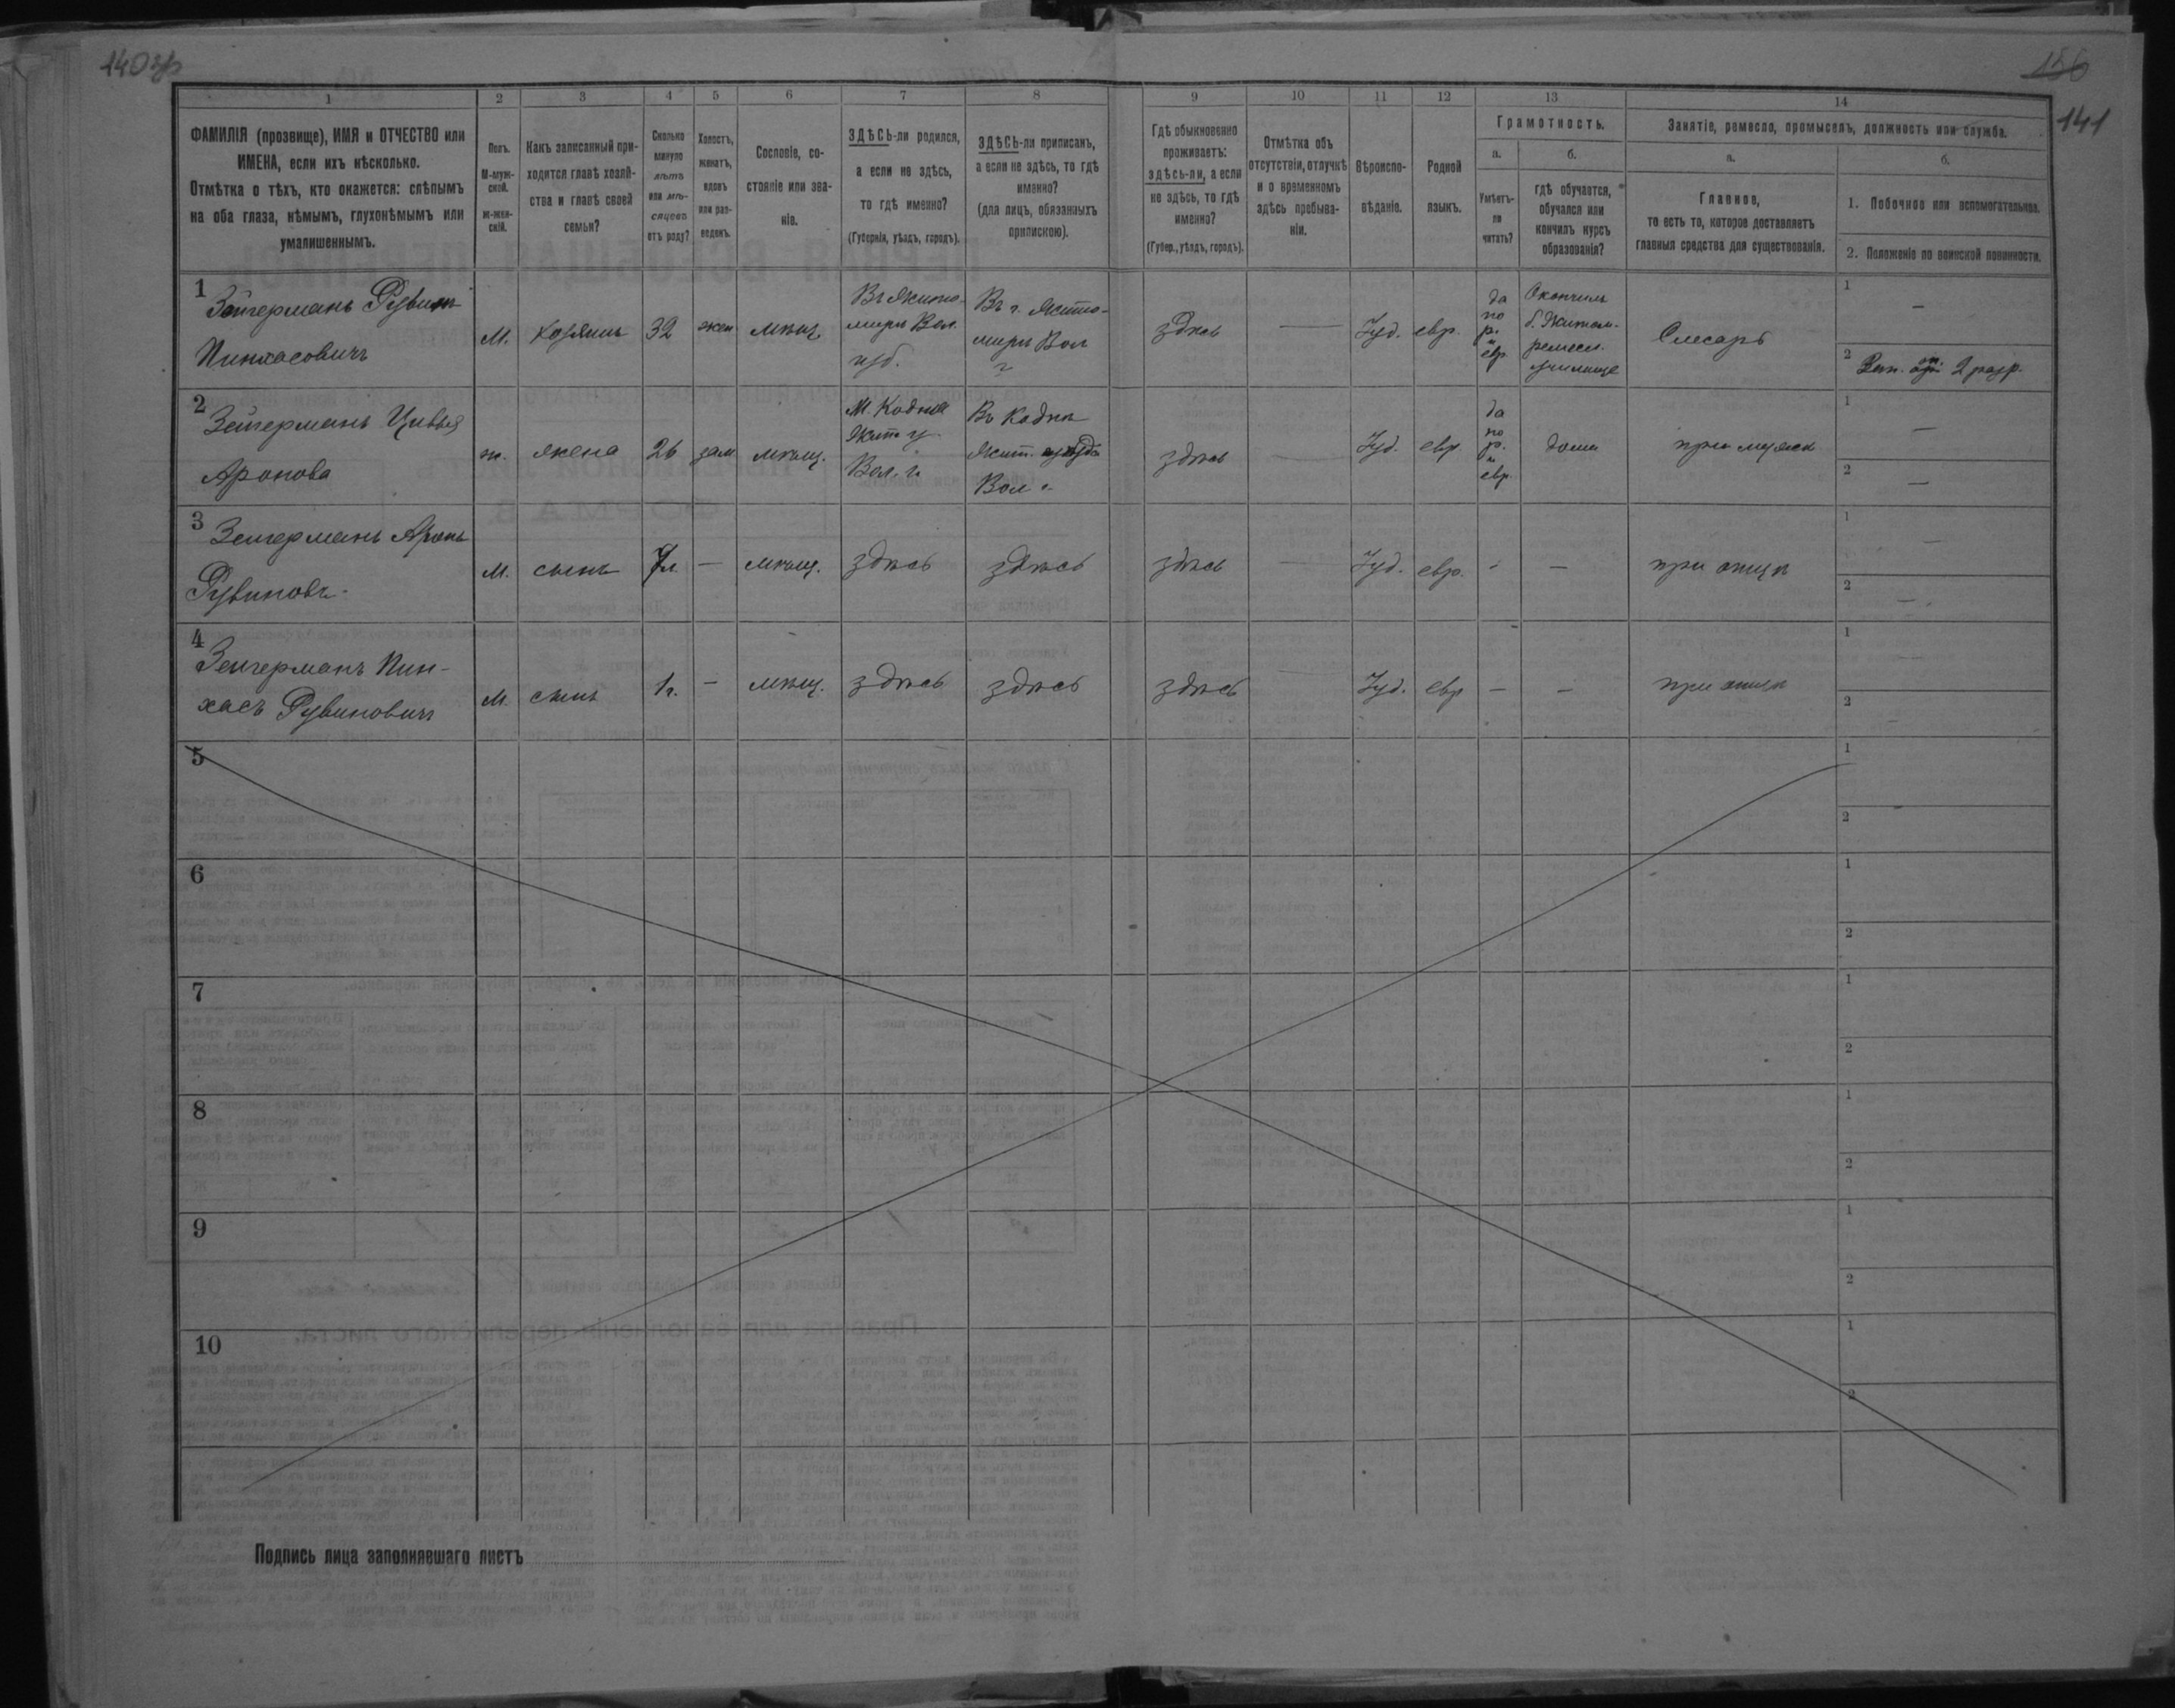 140 зв
156
141
1 2 3 4 5 6 7 8 9 10 11 12 13 14
ФАМИЛІЯ (прозвище), ИМЯ и ОТЧЕСТВО или
ИМЕНА, если ихъ нѣсколько.
Отмѣтка о тѣхъ, кто окажется: слѣпымъ
на оба глаза, нѣмымъ, глухонѣмымъ или
умалишеннымъ.
Полъ.
М-муж-
ской.
ж-жен-
скій.
Какъ записанный при-
ходится главѣ хозяй-
ства и главѣ своей
семьи?
Сколько
минуло
лѣтъ
или мѣ-
сяцевъ
отъ роду?
Холостъ,
женатъ,
вдовъ
или раз-
веденъ.
Сословіе, со-
стояніе или зва-
ніе.
ЗДѢСЬ-ли родился,
а если не здѣсь,
то гдѣ именно?
(Губернія, уѣздъ, городъ).
ЗДѢСЬ-ли приписанъ,
а если не здѣсь, то гдѣ
именно?
(для лицъ, обязанныхъ
припискою).
Гдѣ обыкновенно
проживаетъ:
здѣсь-ли, а если
не здѣсь, то гдѣ
именно?
(Губер., уѣздъ, городъ).
Отмѣтка объ
отсутствіи, отлучкѣ
и о временномъ
здѣсь пребыва-
ніи.
Вѣроиспо-
вѣданіе.
Родной
языкъ.
Грамотность.
а.
Умѣетъ-
ли
читать?
б.
гдѣ обучается,
обучался или
кончилъ курсъ
образованія?
Занятіе, ремесло, промыселъ, должность или служба.
а.
Главное,
то есть то, которое доставляетъ
главныя средства для существованія.
б.
1. Побочное или вспомогательное.
2. Положеніе по воинской повинности.
1
Зейгерманъ Рувинъ
Пинхасовичъ
М.
Хозяинъ
32
жен
мѣщ.
Въ Жито-
мирѣ Вол.
губ.
Въ г. Жито-
мирѣ Вол
г
здѣсь
—
Іуд.
евр.
да
по
р.
и
евр.
Окончилъ
б. Житом.
ремесл.
училище
Слесарь
1
—
2
2 разр.
2
Зейгерманъ Цивья
Аронова
ж.
жена
26
зам
мѣщ.
М. Кодня
Жит. у.
Вол. г.
Въ Кодня
Жит. уѣзда
Вол г.
здѣсь
—
Іуд.
евр
да
по
р.
и
евр.
дома
при мужѣ
1
—
2
—
3
Зейгерманъ Аронъ
Рувиновъ
М.
сынъ
—
мѣщ.
здѣсь
здѣсь
здѣсь
—
Іуд.
евр.
-
—
при отцѣ
1
—
2
—
4
Зейгерманъ Пин-
хасъ Рувиновичъ
М.
сынъ
1 г.
—
мѣщ.
здѣсь
здѣсь
здѣсь
—
Іуд.
евр
—
—
при отцѣ
1
—
2
5
1
2
6
1
2
7
1
2
8
1
2
9
1
2
10
1
2
Подпись лица заполнявшаго листъ